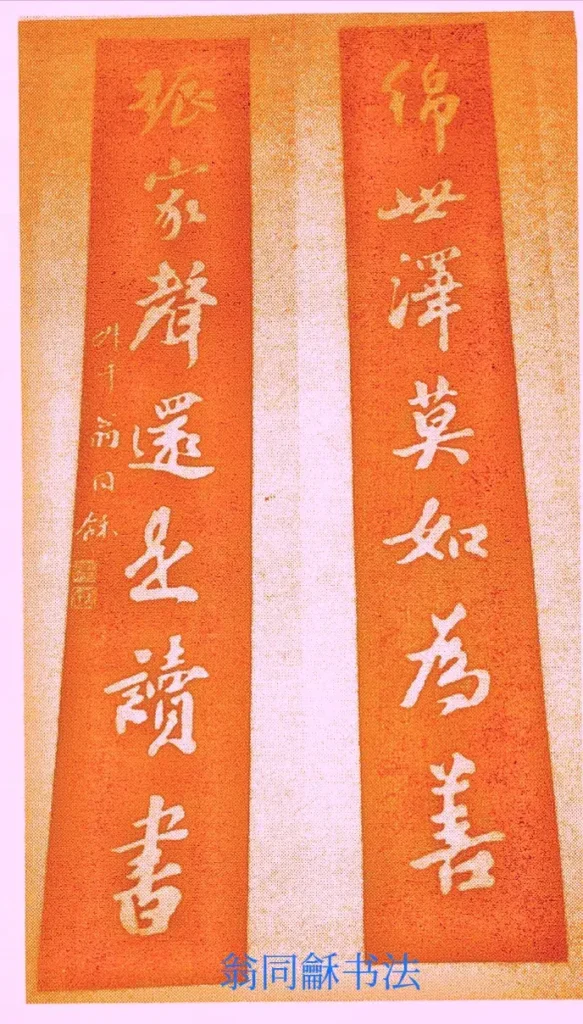 綿世澤莫如為善
振家聲還是讀書
叔平翁同龢
翁同龢书法